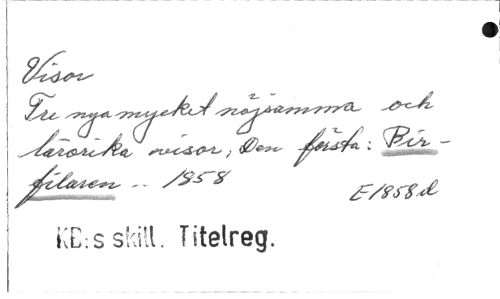 Visor
Tre nya mycket nöjsamma och
lärorika visor; Den första: Bir-
filaren .. 1858
E1858d
KB:s skill. Titelreg.